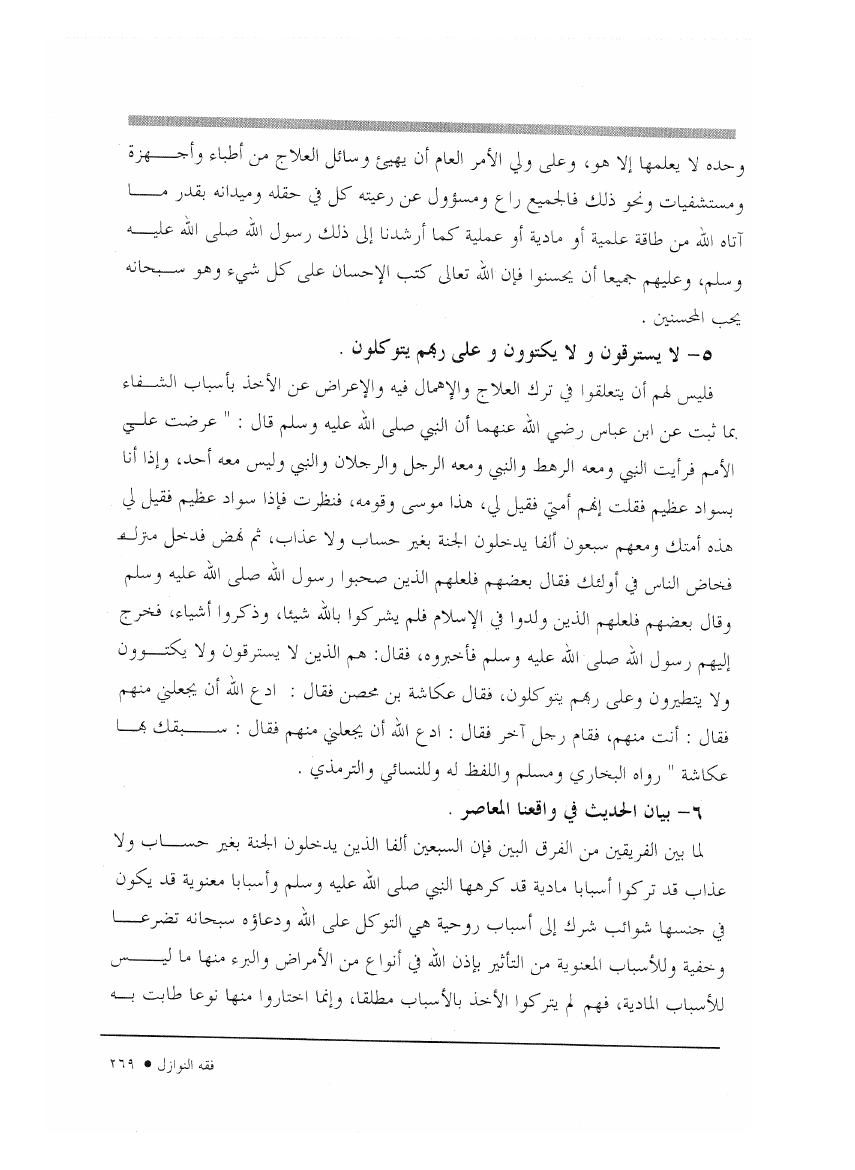 وحده لا يعلمها إلا هو، وعلى ولي الأمر العام أن يهيئ وسائل العلاج من أطباء وأجـــهزة
ومستشفيات ونحو ذلك فالجميع راع ومسؤول عن رعيته كل في حقله وميدانه بقدر مـــا
آتاه الله من طاقة علمية أو مادية أو عملية كما أرشدنا إلى ذلك رسول الله صلى الله عليــه
وسلم، وعليهم جميعا أن يحسنوا فإن الله تعالى كتب الإحسان على كل شيء وهو ســبحانه
يحب المحسنين .
٥- لا يسترقون و لا يكتوون و على ربهم يتوكلون .
فليس لهم أن يتعلقوا في ترك العلاج والإهمال فيه والإعراض عن الأخذ بأسباب الشــفاء
بما ثبت عن ابن عباس رضي الله عنهما أن النبي صلى الله عليه وسلم قال : " عرضت علـي
الأمم فرأيت النبي ومعه الرهط والنبي ومعه الرجل والرجلان والنبي وليس معه أحد، وإذا أنا
بسواد عظيم فقلت إنهم أمتي فقيل لي، هذا موسى وقومه، فنظرت فإذا سواد عظيم فقيل لي
هذه أمتك ومعهم سبعون ألفا يدخلون الجنة بغير حساب ولا عذاب، ثم نهض فدخل منزلـه
فخاض الناس في أولئك فقال بعضهم فلعلهم الذين صحبوا رسول الله صلى الله عليه وسلم
وقال بعضهم فلعلهم الذين ولدوا في الإسلام فلم يشركوا بالله شيئا، وذكروا أشياء، فخرج
إليهم رسول الله صلى الله عليه وسلم فأخبروه، فقال: هم الذين لا يسترقون ولا يكتـــوون
ولا يتطيرون وعلى ربهم يتوكلون، فقال عكاشة بن محصن فقال : ادع الله أن يجعلني منهم
فقال : أنت منهم، فقام رجل آخر فقال : ادع الله أن يجعلني منهم فقال : ســــبقك بهـــا
عكاشة " رواه البخاري ومسلم واللفظ له وللنسائي والترمذي .
٦- بيان الحديث في واقعنا المعاصر .
لما بين الفريقين من الفرق البين فإن السبعين ألفا الذين يدخلون الجنة بغير حســـاب ولا
عذاب قد تركوا أسبابا مادية قد كرهها النبي صلى الله عليه وسلم وأسبابا معنوية قد يكون
في جنسها شوائب شرك إلى أسباب روحية هي التوكل على الله ودعاؤه سبحانه تضرعـــا
وخفية وللأسباب المعنوية من التأثير بإذن الله في أنواع من الأمراض والبرء منها ما ليـــس
للأسباب المادية، فهم لم يتركوا الأخذ بالأسباب مطلقا، وإنما اختاروا منها نوعا طابت بـــه
فقه النوازل • ٢٦٩